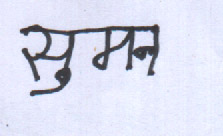 सुमन